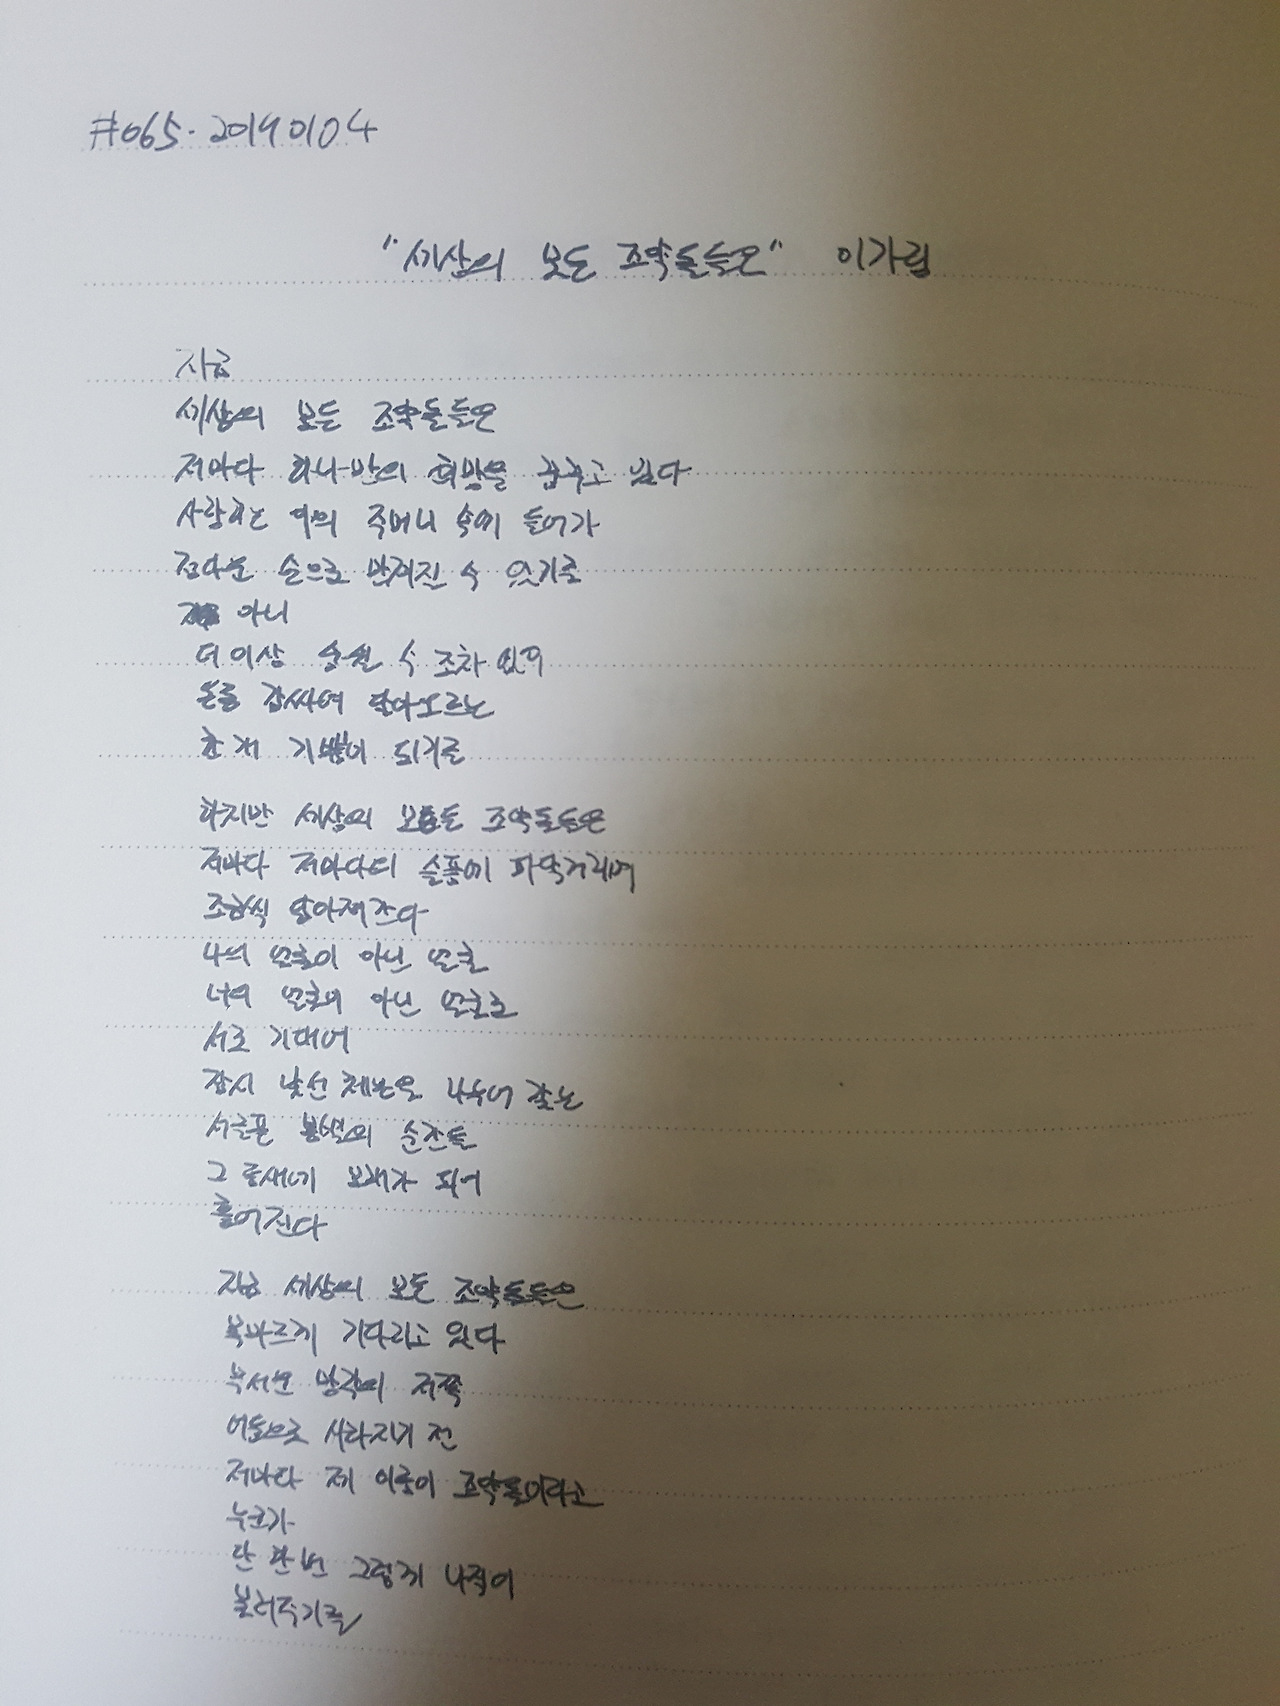 #065. 20190104
"세상의 모든 조약돌들은" 이가림
지금
세상의 모든 조약돌들은
저마다 하나만의 희망을 꿈꾸고 있다
사랑하는 이의 주머니 속에 들어가
정다운 손으로 만져진 수 있기를
아니
더 이상 숨쉴 수 조차 없이
손을 감싸며 달아오르는
한 개 기쁨이 되기를
하지만 세상의 모든 조약돌들은
저마다 저마다의 슬픔에 파닥거리며
조금씩 닳아져간다
나의 모습이 아닌 모습
너의 모습이 아닌 모습으로
서로 기대어
잠시 낯선 체온을 나누어 갖는
서글픈 몸섞의 순간들
그 틈새에 모래가 되어
흩어진다
지금 세상의 모든 조약돌들은
목마르게 기다리고 있다
무서운 망각의 저쪽
어둠으로 사라지기 전
저마다 제 이름이 조약돌이라고
누군가
단 한번 그렇게 나직이
불러주기를